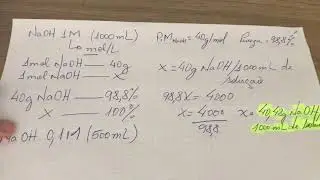 NaOH 1M (1000mL)
mol/L
P.M NaOH = 40g/mol Pureza = 98,8%
1mol NaOH — 40g
1mol NaOH — X
X = 40g NaOH/1000mL de solução
40g NaOH — 98,8%
X — 100%
98,8X = 4000
X = 4000
98,8
X = 40,48g NaOH/
1000mL de
NaOH 0,1M (500mL)